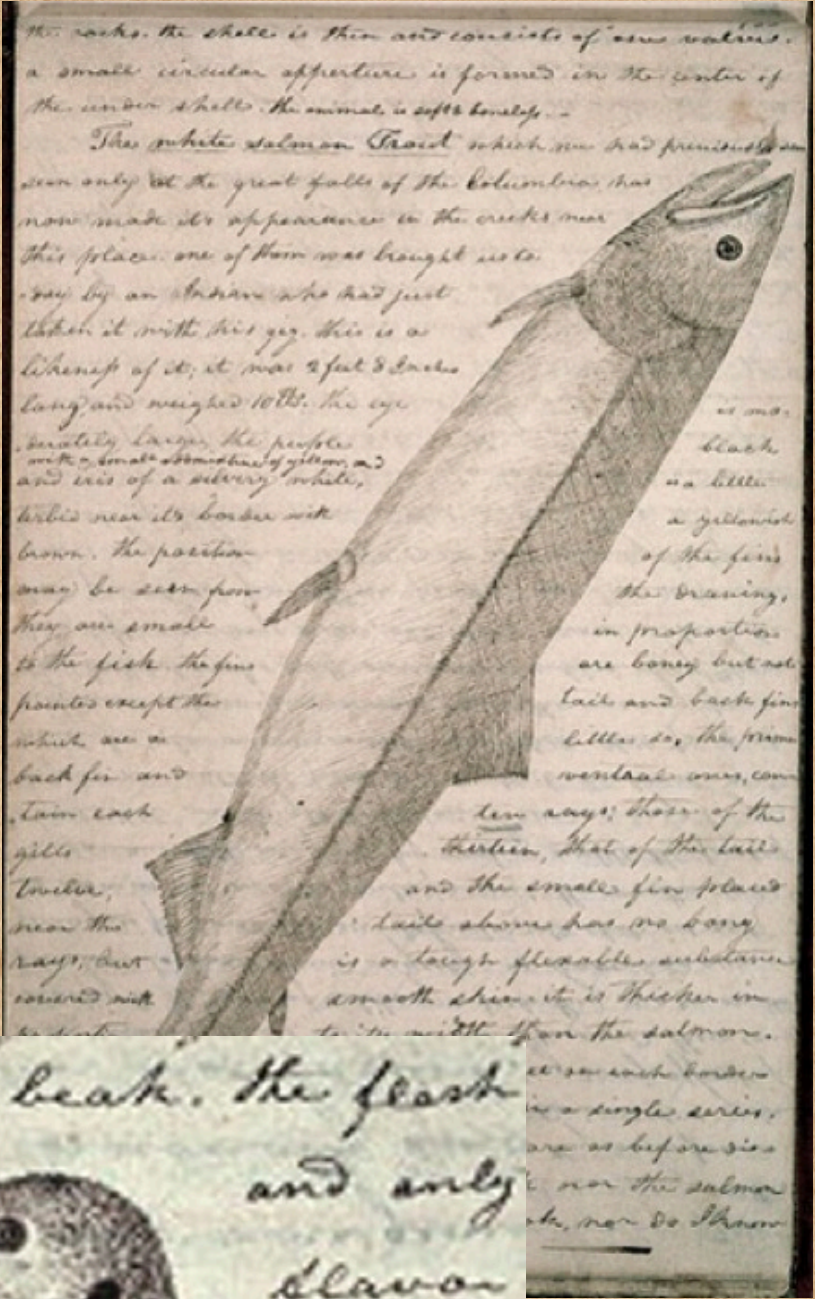 the rocks. the shell is thin and consists of one valve.
a small circular apperture is formed in the center of
the under shell. the animal is soft & boneless. -
The white salmon Trout which we had previously
seen only at the great falls of the Columbia has
now made it's appearance in the creeks near
this place. one of them was brought us to
day by an Indian who had just
taken it with his gig. this is a
likeness of it; it was 2 feet 8 Inches
long and weighed 10 lbs. the eye is mo-
derately large, the puple black
with a small admixture of yellow, and
and iris of a silvery white, is a little
terbid near it's border with a yellowish
brown. the position of the fins
may be seen from the drawing,
they are small in proportion
to the fish. the fins are boney but not
pointed except the tail and back fins
which are a little so, the prime
back fin and ventral ones, con
tain each ten rays; those of the
gills thirteen, that of the tail
twelve, and the small fin placed
near the tail above has no bony
rays, but is a tough flexable substance
covered with smooth skin. it is thicker in
width than the salmon.
on each border
in a single series.
are as before dis
nor the salmon
nor do I know
beak. The flesh
and only
flavor